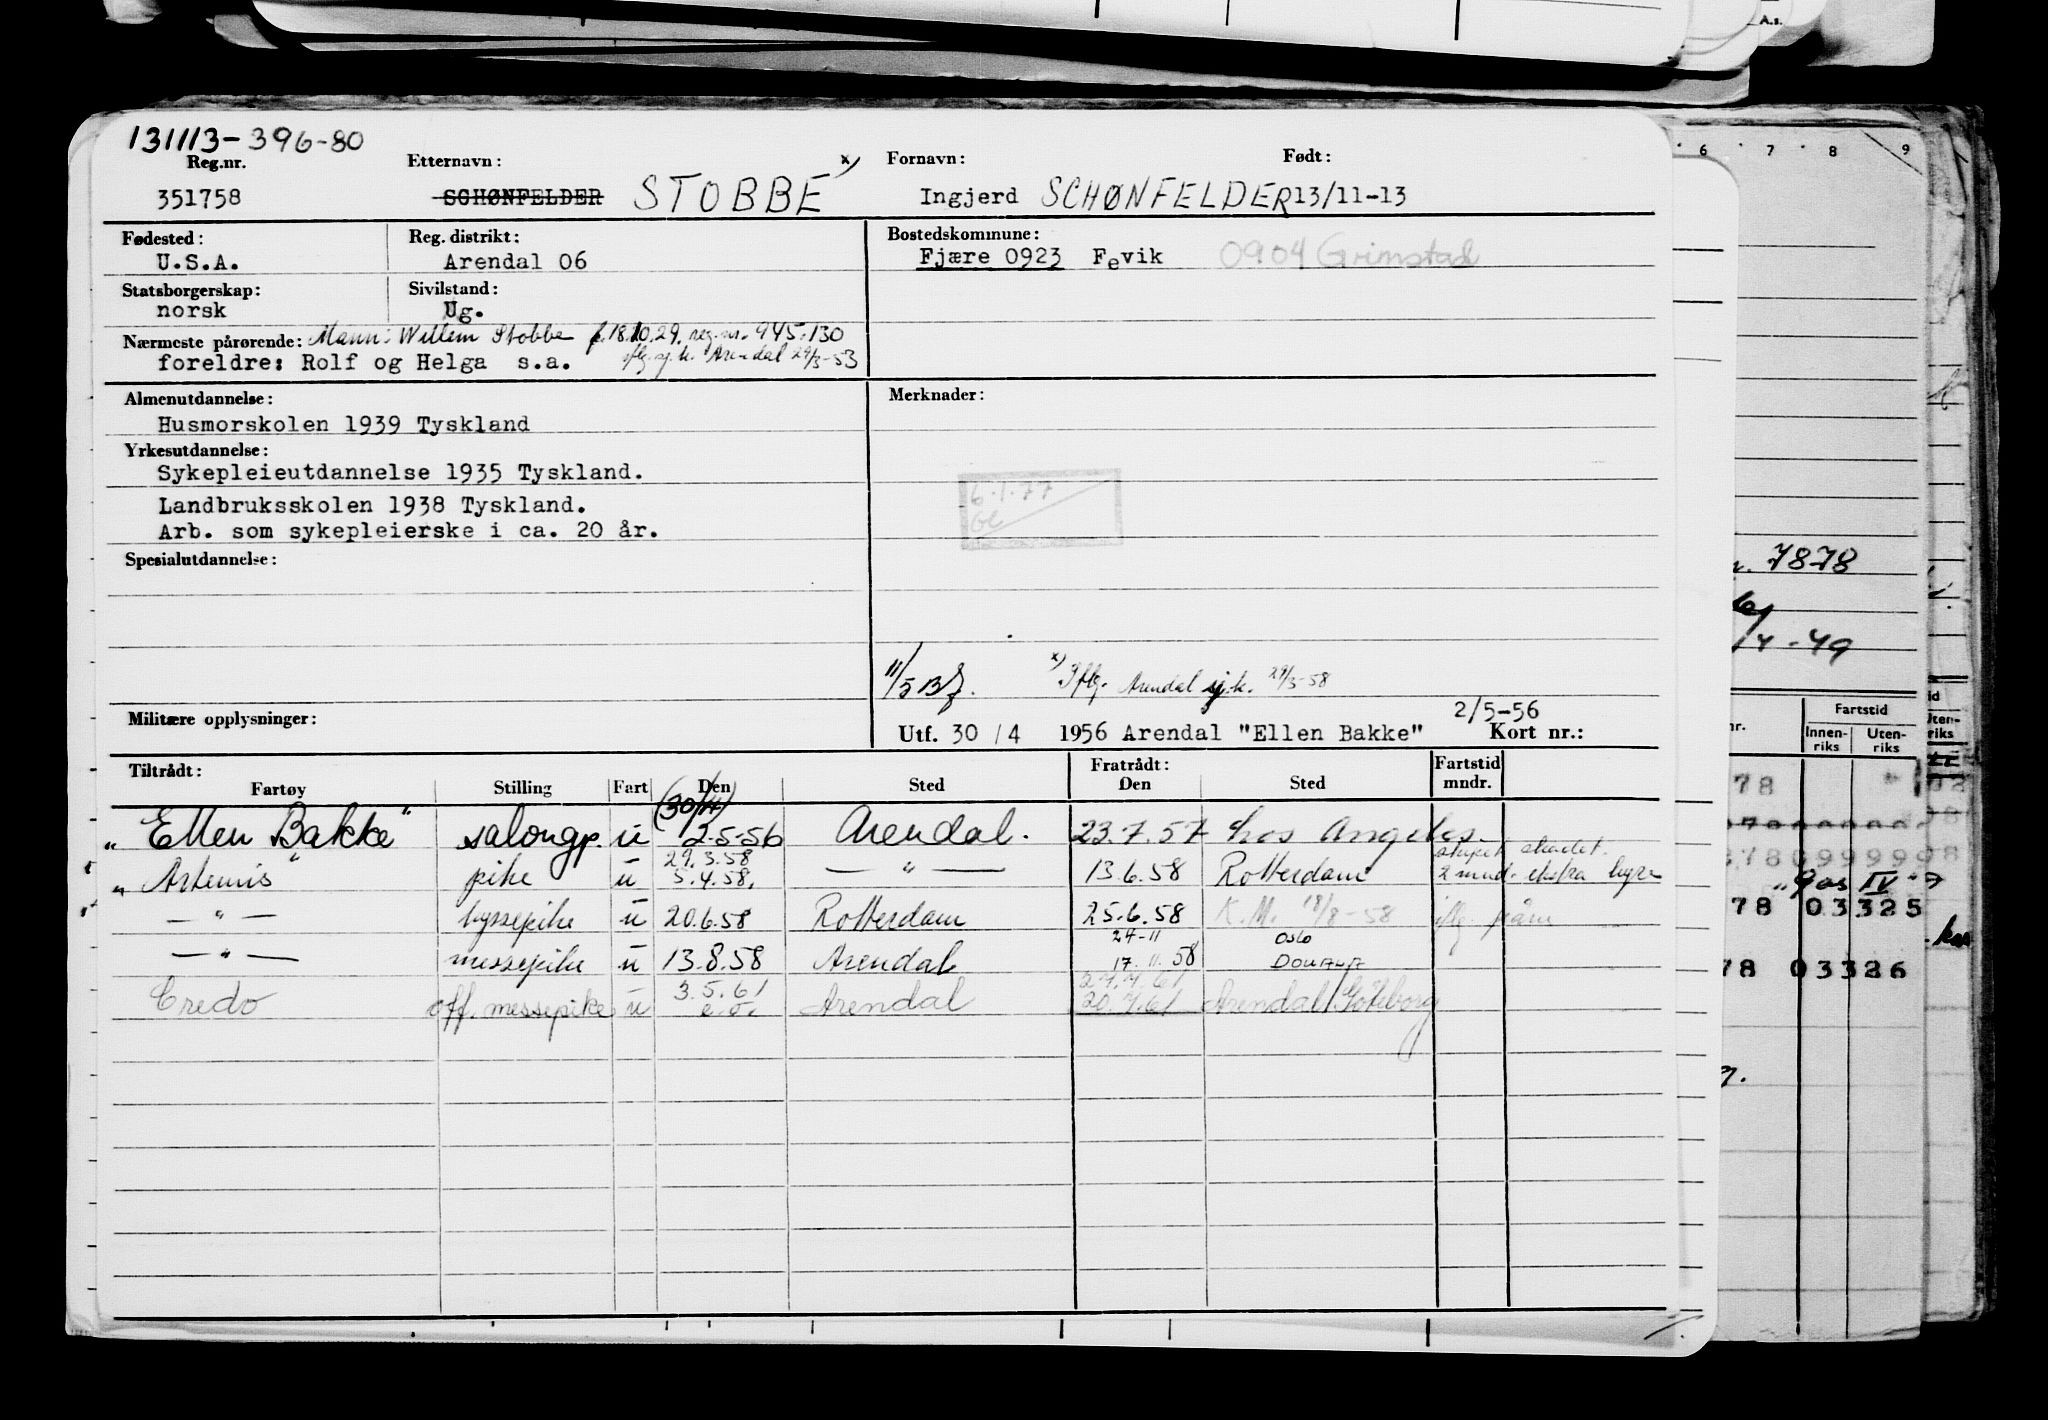 131113-396-80
Reg.nr. Etternavn: x) Fornavn: Født:
351758 SCHØNFELDER STOBBE Ingjerd SCHØNFELDER 13/11-13
Fødested: Reg. distrikt: Bostedskommune:
U.S.A. Arendal 06 Fjære 0923 Fevik 0904 Grimstad
Statsborgerskap: Sivilstand:
norsk Ug.
Nærmeste pårørende: Mann: Willem Stobbe f. 18.10.29. reg.nr. 945.130
foreldre: Rolf og Helga s.a. iflg. sj.k. Arendal 29/3-53
Almenutdannelse: Merknader:
Husmorskolen 1939 Tyskland
Yrkesutdannelse:
Sykepleieutdannelse 1935 Tyskland.
6.1.77
Landbruksskolen 1938 Tyskland.
Arb. som sykepleierske i ca. 20 år.
Spesialutdannelse:
11/5 x) Iflg. Arendal sj.k. 29/3-58
Militære opplysninger: 2/5-56
Utf. 30/4 1956 Arendal "Ellen Bakke" Kort nr.:
Tiltrådt: Fratrådt: Fartstid
Fartøy Stilling Fart Den Sted Den Sted mndr.
(30/4)
"Ellen Bakke" salongp. u 2-5-56 Arendal. 23.7.57 Los Angeles.
29.3.58 skipet skadet.
"Artemis" pike u 5.4.58. — " — 13.6.58 Rotterdam 2 mnd. ekstra hyre
— " — byssepike u 20.6.58 Rotterdam 25.6.58 K.M. 18/8-58 iflg.
24-11 Oslo
— " — messepike u 13.8.58 Arendal 17.11.58
3.5.61 27.7.61
Credo off. messepike u e.o. Arendal 20.7.61 Arendal/Göteborg
A.s.
6 7 8 9
7878
4-49
Fartstid
Innen-riks Uten-riks
78
78 03325
78 03326